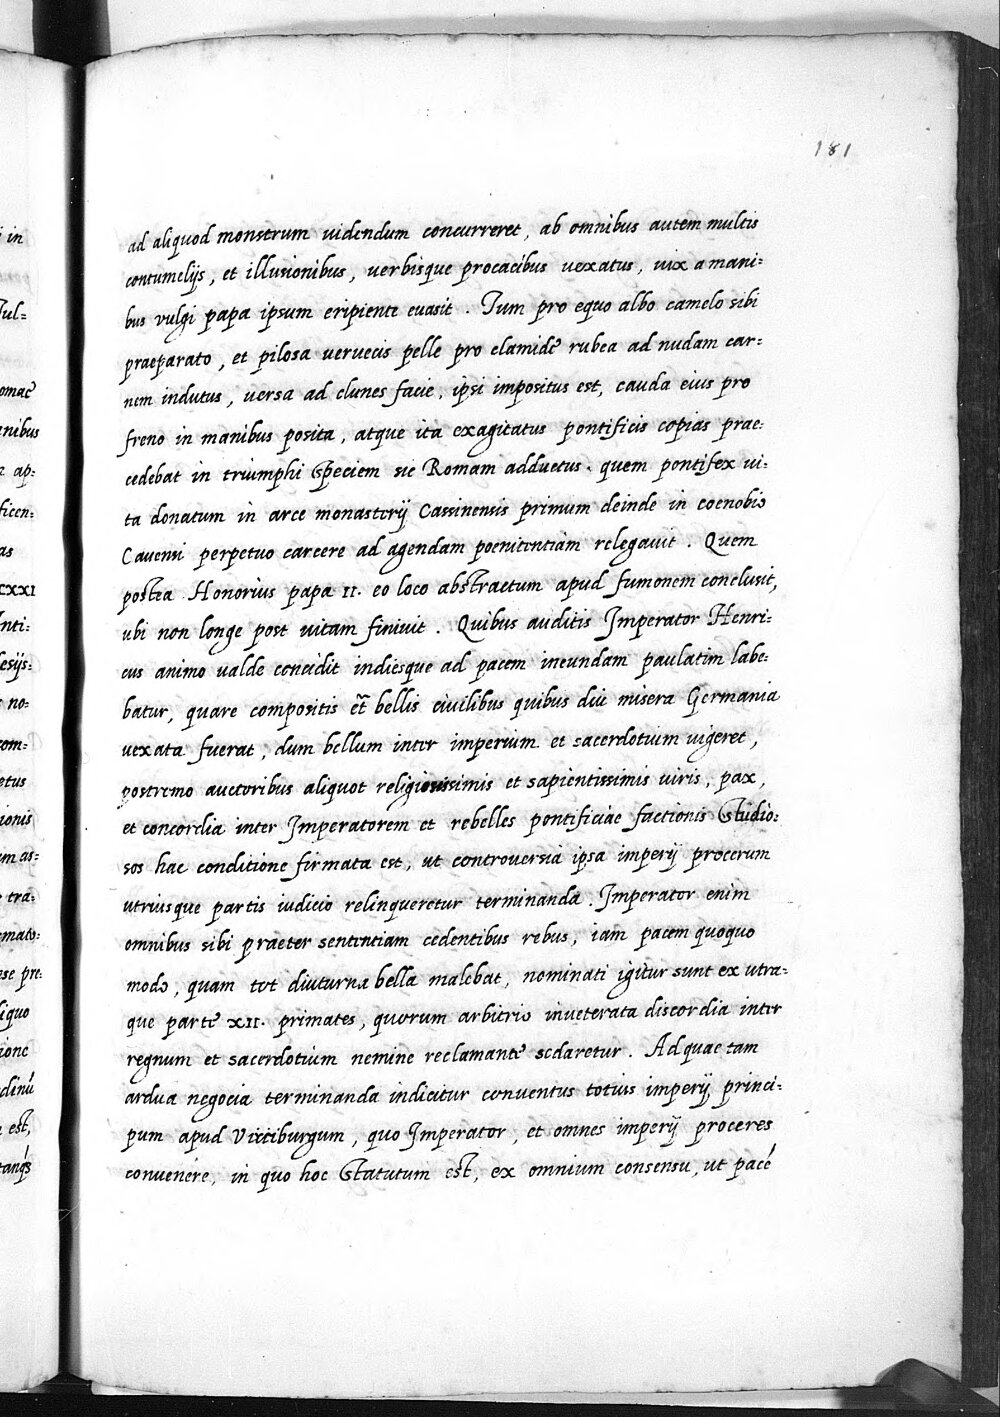 181
ad aliquod monstrum uidendum concurreret, ab omnibus autem multis
contumelijs, et illusionibus, uerbisque procacibus uexatus, uix a mani=
bus vulgi papa ipsum eripiente euasit. Tum pro equo albo camelo sibi
praeparato, et pilosa ueruecis pelle pro clamide rubea ad nudam car=
nem indutus, uersa ad clunes facie, ipsi impositus est, cauda eius pro
freno in manibus posita, atque ita exagitatus pontificis copias prae=
cedebat in triumphi speciem sic Romam adductus. quem pontifex ui=
ta donatum in arce monasterij Cassinensis primum deinde in coenobio
Cauensi perpetuo carcere ad agendam poenitentiam relegauit. Quem
postea Honorius papa II. eo loco abstractum apud fumonem conclusit,
ubi non longe post uitam finiuit. Quibus auditis Imperator Henri=
cus animo valde concidit indiesque ad pacem ineundam paulatim labe=
batur, quare compositis et bellis ciuilibus quibus diu misera Germania
uexata fuerat, dum bellum inter imperium et sacerdotium uigeret,
postremo auctoribus aliquot religiosissimis et sapientissimis uiris, pax,
et concordia inter Imperatorem et rebelles pontificiae factionis studio=
sos hac conditione firmata est, ut controuersia ipsa imperij procerum
utriusque partis iudicio relinqueretur terminanda. Imperator enim
omnibus sibi praeter sententiam cedentibus rebus, iam pacem quoquo
modo, quam tot diuturna bella malebat, nominati igitur sunt ex utra=
que parte XII. primates, quorum arbitrio inueterata discordia inter
regnum et sacerdotium nemine reclamante sedaretur. Ad quae tam
ardua negocia terminanda indicitur conuentus totius imperij princi=
pum apud Virtiburgum, quo Imperator, et omnes imperij proceres
conuenére, in quo hoc statutum est, ex omnium consensu, ut pacé